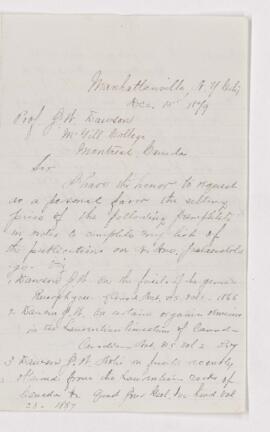 Manhattanville, N. Y. City
Dec. 1879
Prof. J. W. Dawson
McGill College
Montreal Canada
Sir
I have the honor to request
as a personal favor the selling
price of the following pamphlets
in order to complete my list of
the publications on
viz
1 Dawson J. W. On the fossils of the genus
2 Dawson J. W. On certain organic remains
in the Laurentian limestone of Canada
Canadian Nat. Vol 2
3 Dawson J. W. Notes on fossils recently
obtained from the Laurentian rocks of
Canada &c Quart Jour Geol. Soc Lond. Vol
23. 1867